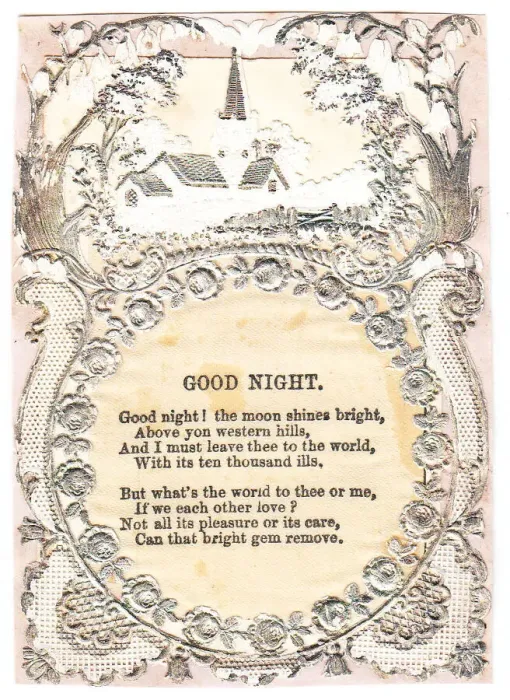 GOOD NIGHT.
Good night! the moon shines bright,
Above yon western hills,
And I must leave thee to the world,
With its ten thousand ills.
But what's the world to thee or me,
If we each other love?
Not all its pleasure or its care,
Can that bright gem remove.